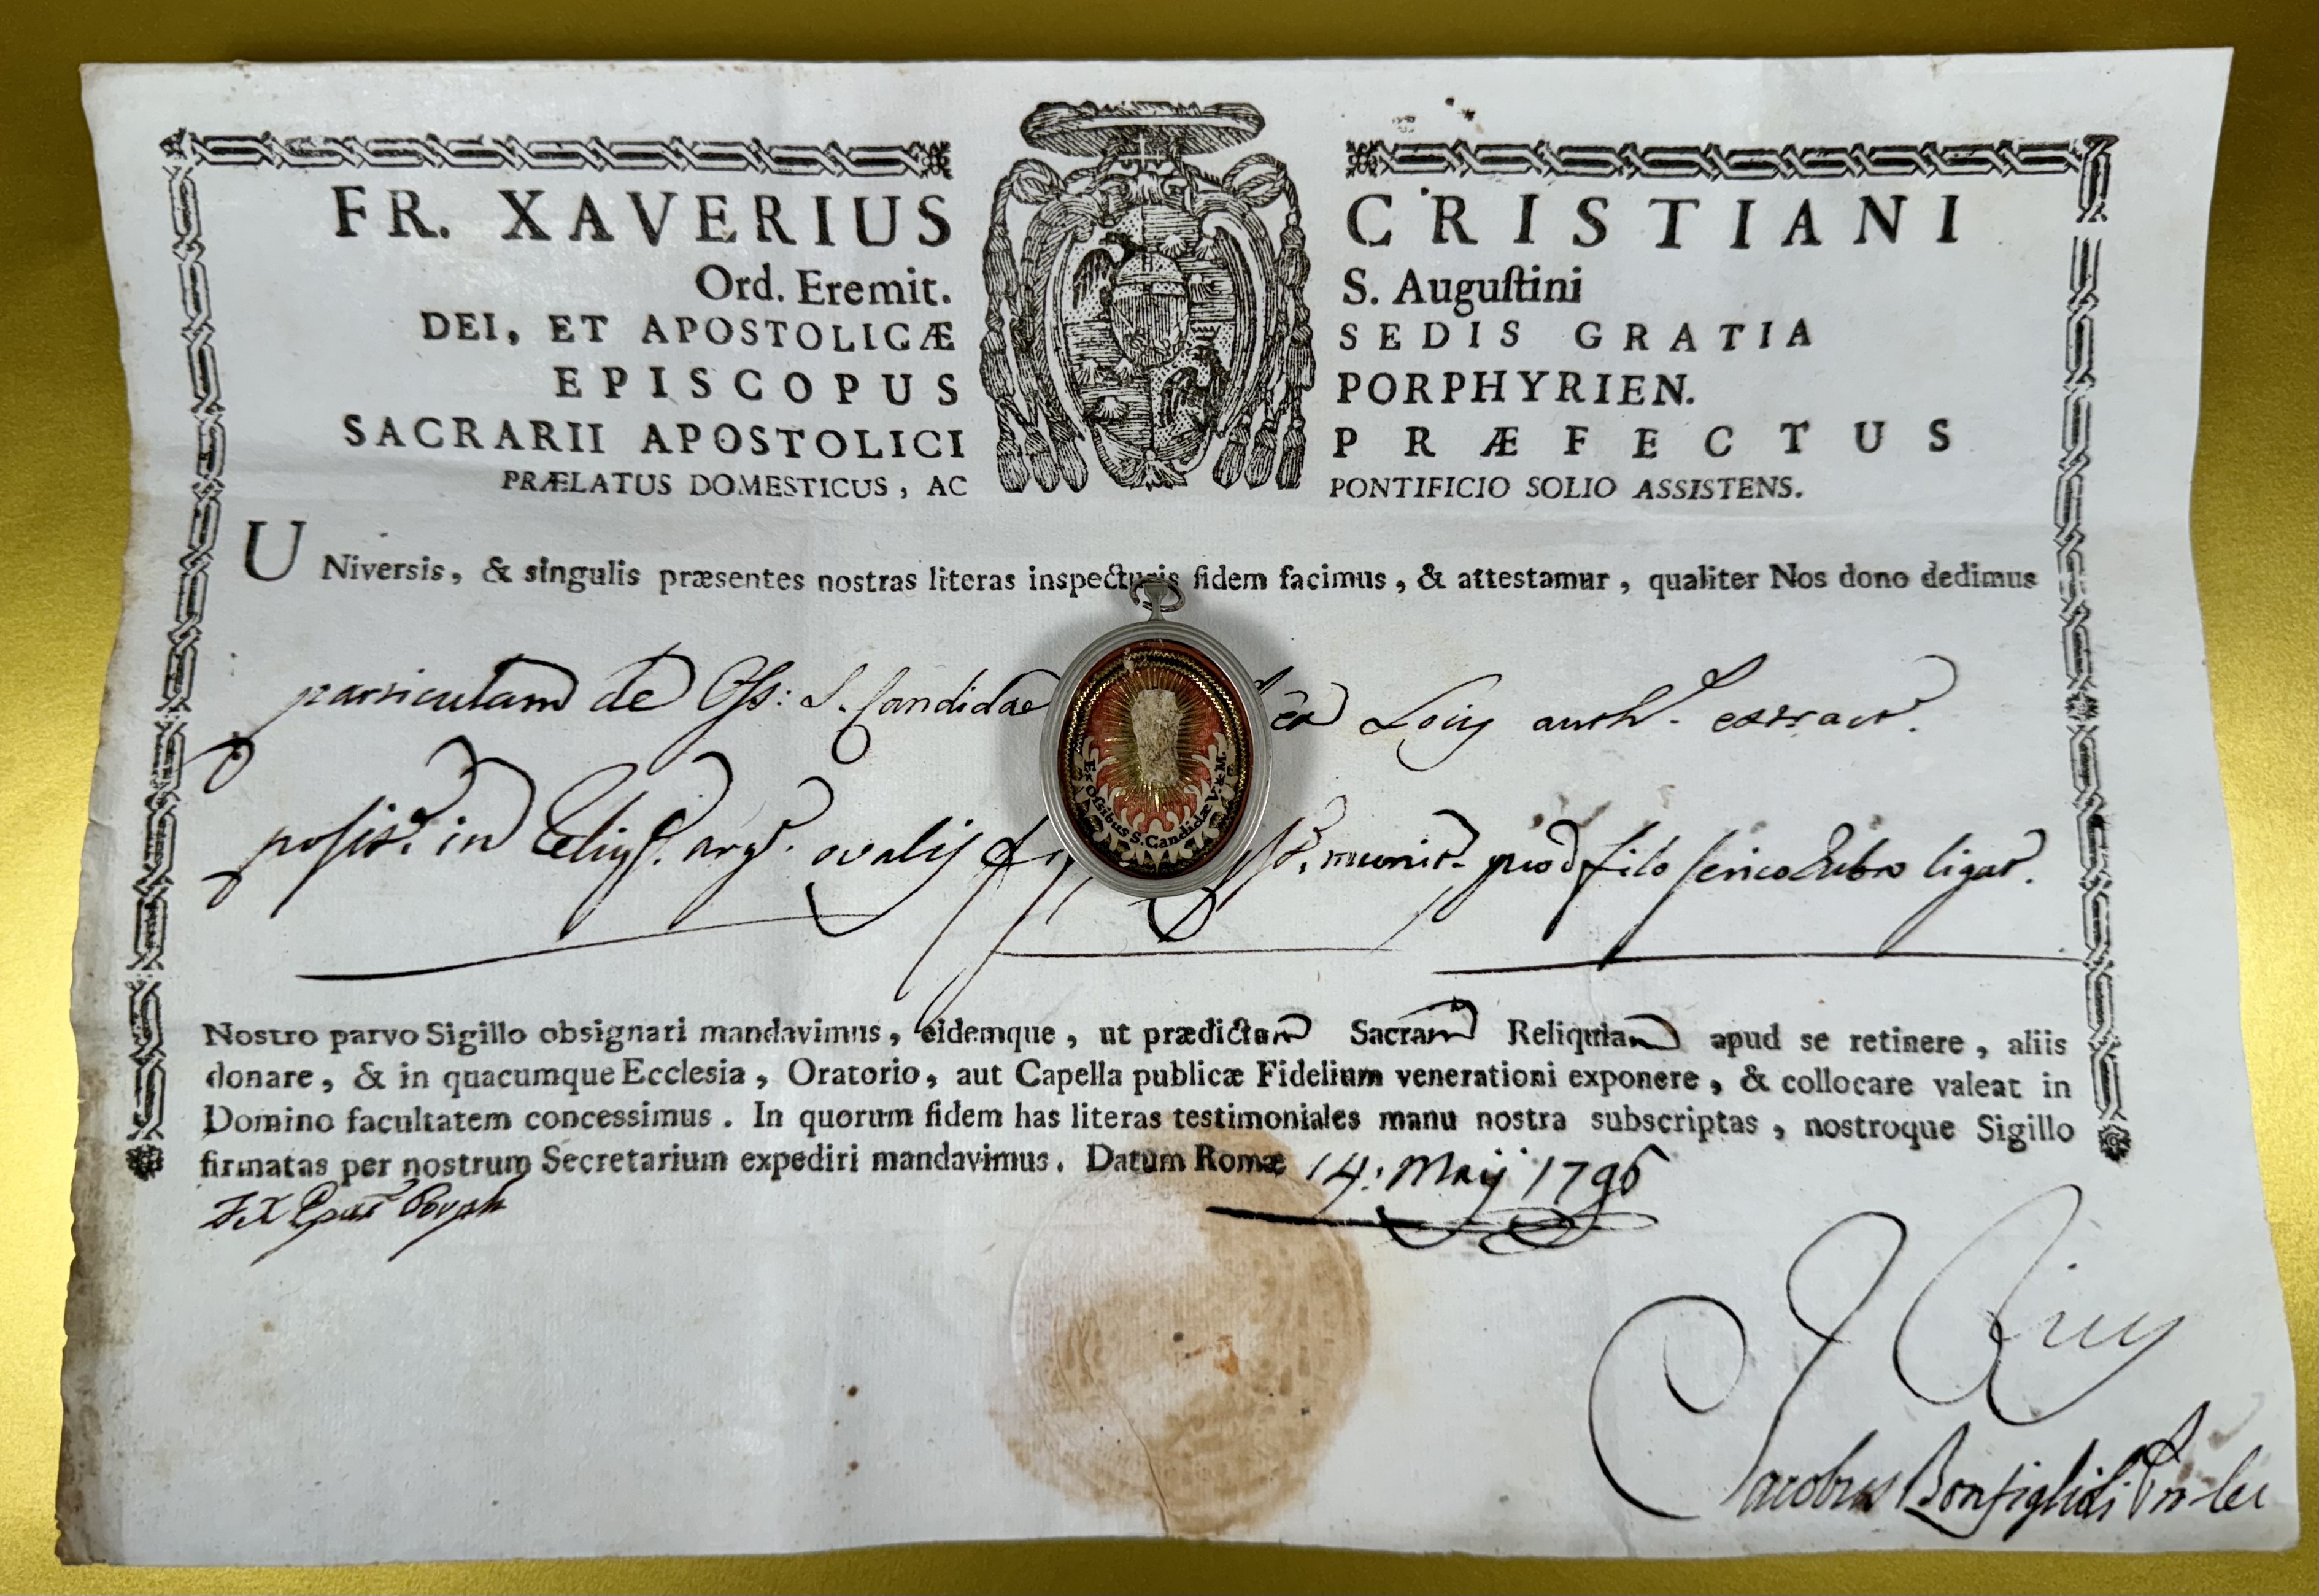 FR. XAVERIUS CRISTIANI
Ord. Eremit. S. Auguſtini
DEI, ET APOSTOLICÆ SEDIS GRATIA
EPISCOPUS PORPHYRIEN.
SACRARII APOSTOLICI PRÆFECTUS
PRÆLATUS DOMESTICUS, AC PONTIFICIO SOLIO ASSISTENS.
UNiversis, & singulis præsentes nostras literas inspecturis fidem facimus, & attestamur, qualiter Nos dono dedimus
particulam de Oss: S. Candidae ex Locis auth. extract.
posit. in arg. ovalis munit. filo serico rubro ligat.
Ex Ossibus S. Candidæ V. & M.
Nostro parvo Sigillo obsignari mandavimus, eidemque, ut prædictam Sacram Reliquiam apud se retinere, aliis
donare, & in quacumque Ecclesia, Oratorio, aut Capella publicæ Fidelium venerationi exponere, & collocare valeat in
Domino facultatem concessimus. In quorum fidem has literas testimoniales manu nostra subscriptas, nostroque Sigillo
firmatas per nostrum Secretarium expediri mandavimus. Datum Romæ 14. Maij 1796
F. X. Porph
Jacobus Bonfiglioli